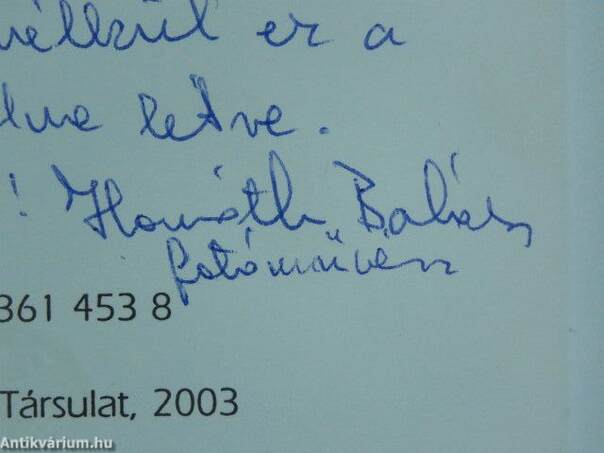 nélkül ez a
lve letve.
! Horváth Balázs
fotóművész
361 453 8
Társulat, 2003
Antikvárium.hu